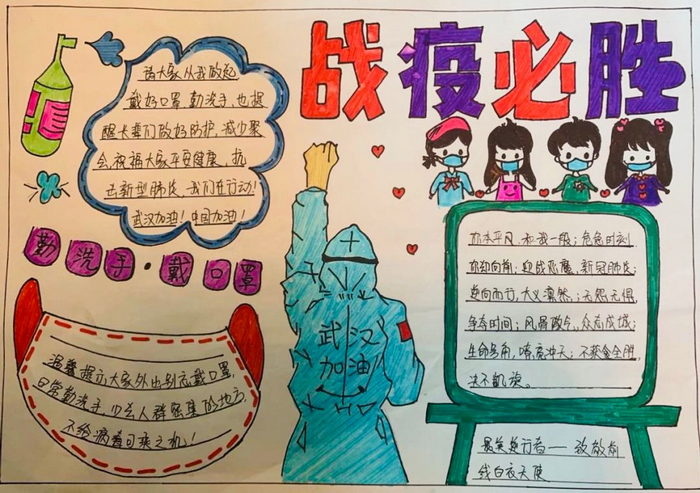 战疫必胜
请大家从我做起
戴好口罩,勤洗手,也提
醒长辈们做好防护,减少聚
会,祝福大家平安健康。抗
击新型肺炎,我们在行动!
武汉加油!中国加油!
勤洗手·戴口罩
温馨提示大家外出别忘戴口罩,
日常勤洗手,少去人群密集的地方,
不给病毒可乘之机!
武汉
加油
你本平凡,和我一般;危急时刻
你却向前;迎战恶魔,新冠肺炎;
逆向而行,大义凛然;无怨无惧,
争夺时间;风暴,众志成城;
生命号角,嘹亮冲天;不获全胜,
决不凯旋。
最美逆行者——致敬前
线白衣天使